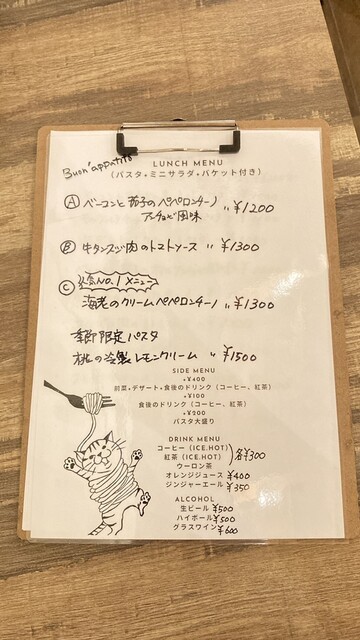 Buon'appatito
LUNCH MENU
(パスタ・ミニサラダ・バケット付き)
Ⓐ ベーコンと茄子のペペロンチーノ
アンチョビ風味 〃 ¥1200
Ⓑ 牛タンスジ肉のトマトソース 〃 ¥1300
Ⓒ 人気NO.1メニュー
海老のクリームペペロンチーノ 〃 ¥1300
季節限定パスタ
桃の冷製レモンクリーム 〃 ¥1500
SIDE MENU
+¥400
前菜・デザート・食後のドリンク(コーヒー、紅茶)
+¥100
食後のドリンク(コーヒー、紅茶)
+¥200
パスタ大盛り
DRINK MENU
コーヒー(ICE.HOT)
紅茶(ICE.HOT) 各¥300
ウーロン茶
オレンジジュース ¥400
ジンジャーエール ¥350
ALCOHOL
生ビール ¥500
ハイボール ¥500
グラスワイン ¥600